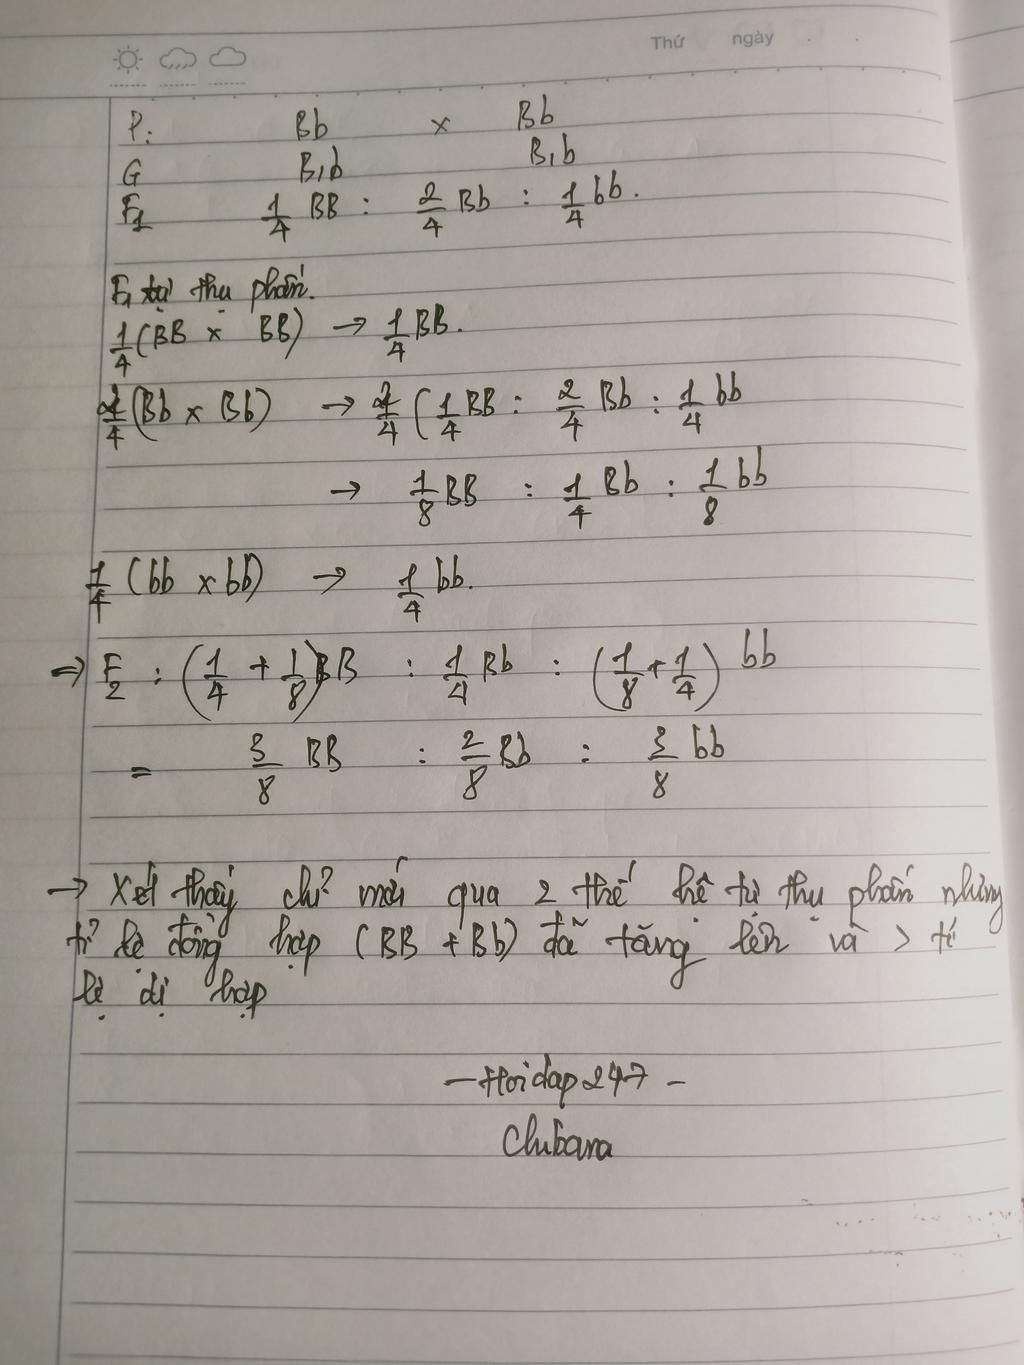 Thứ ngày
P: Bb x Bb
G B,b B,b
F1 1/4 BB : 2/4 Bb : 1/4 bb.
F1 tự thụ phấn.
1/4 (BB x BB) → 1/4 BB.
2/4 (Bb x Bb) → 2/4 ( 1/4 BB : 2/4 Bb : 1/4 bb
→ 1/8 BB : 1/4 Bb : 1/8 bb
1/4 (bb x bb) → 1/4 bb.
⇒ F2 : (1/4 + 1/8) BB : 1/4 Bb : (1/8 + 1/4) bb
= 3/8 BB : 2/8 Bb : 3/8 bb
→ Xét thấy chỉ mới qua 2 thế hệ tự thụ phấn nhưng
tỉ lệ đồng hợp (BB + Bb) đã tăng lên và > tỉ
lệ dị hợp
- Hoidap247 -
Chibana